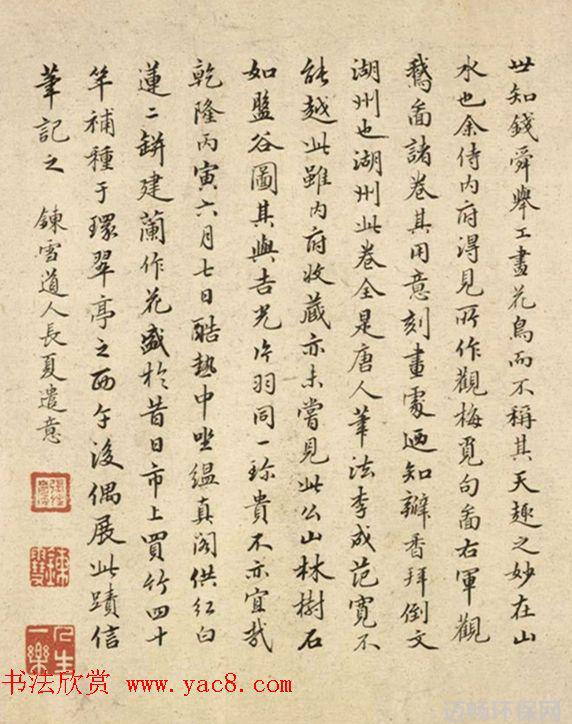 世知錢舜舉工畫花鳥而不稱其天趣之妙在山
水也余侍内府得見所作觀梅覓句啚右軍觀
鵞啚諸卷其用意刻畫處迺知瓣香拜倒文
湖州也湖州此卷全是唐人筆法李成范寬不
能越此雖内府收藏亦未嘗見此公山林樹石
如盤谷圖其與吉光片羽同一珎貴不亦宜哉
乾隆丙寅六月七日酷熱中坐緼真阁供红白
蓮二缾建蘭作花盛於昔日市上買竹四十
竿補種于環翠亭之西午後偶展此蹟信
筆記之 鍊雪道人長夏遣意
鍊雪
人生一樂
书法欣赏 www.yac8.com
迈畅环保网